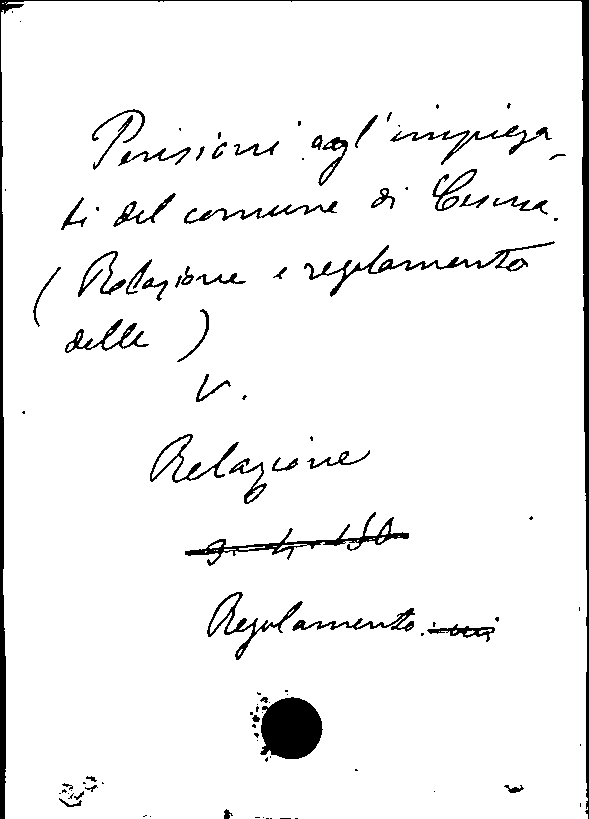 Pensioni agl'impiega-
ti del comune di Cesena.
(Relazione e regolamento
delle)
V.
Relazione
9. 4. 150
Regolamento.